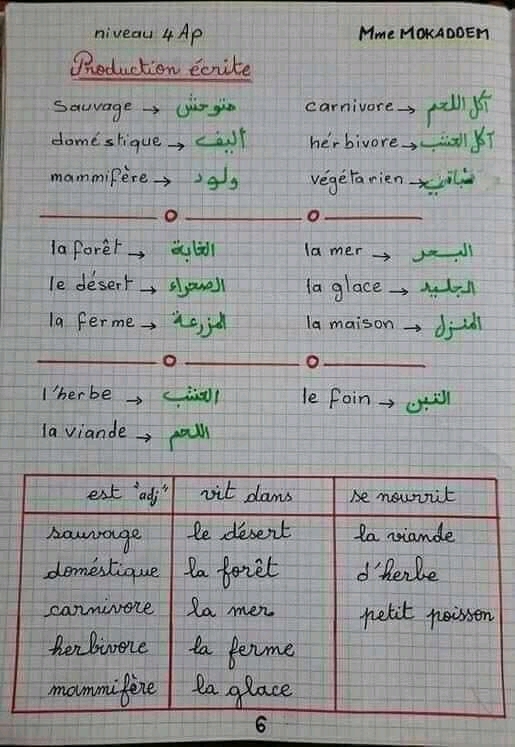 niveau 4 Ap Mme MOKADDEM
Production écrite
sauvage → متوحش carnivore → آكل اللحم
doméstique → أليف hérbivore → آكل العشب
mammifère → ولود végétarien → نباتي
la forêt → الغابة la mer → البحر
le désert → الصحراء la glace → الجليد
la ferme → المزرعة la maison → المنزل
l'herbe → العشب le foin → التبن
la viande → اللحم
est "adj" vit dans se nourrit
sauvage le désert la viande
doméstique la forêt d'herbe
carnivore la mer petit poisson
herbivore la ferme
mammifère la glace
6